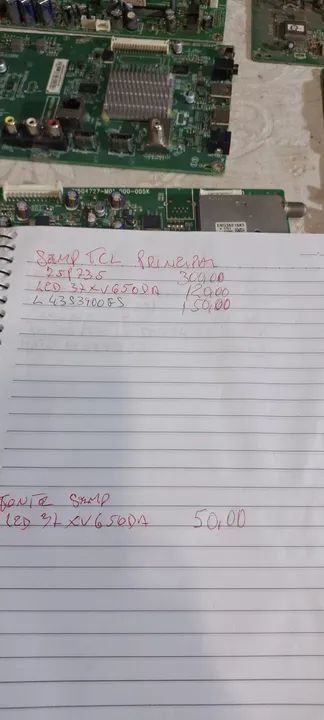 SEMP TCL PRINCIPAL
75P735 300,00
LED 32 XV650DA 120,00
L 43S3900FS 150,00
FONTE SEMP
LED 32 XV650DA 50,00